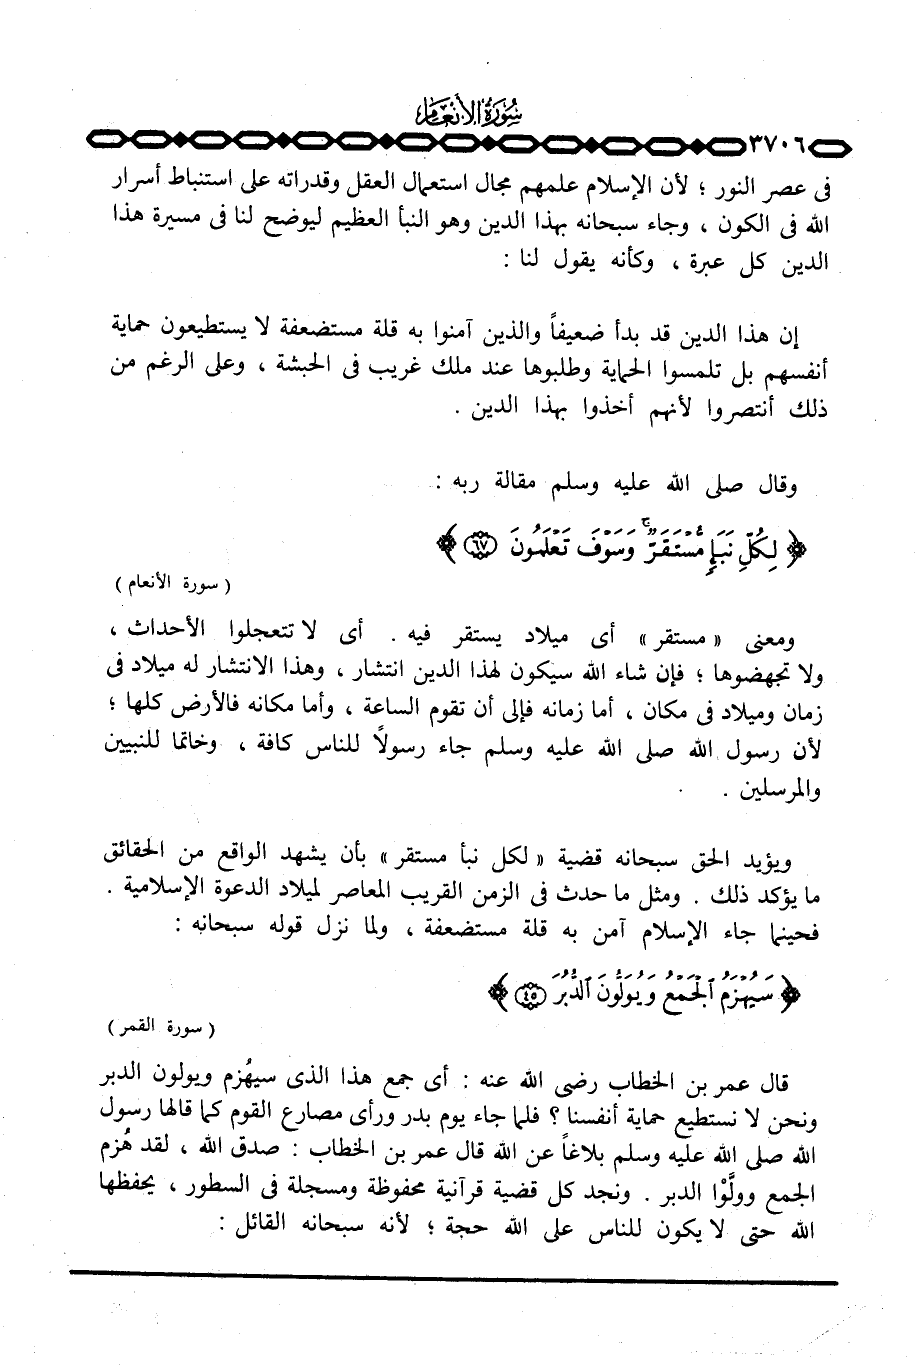 سُورَةُ الأَنْعَامِ
٣٧٠٦
فى عصر النور ؛ لأن الإسلام علمهم مجال استعمال العقل وقدراته على استنباط أسرار
الله فى الكون ، وجاء سبحانه بهذا الدين وهو النبأ العظيم ليوضح لنا فى مسيرة هذا
الدين كل عبرة ، وكأنه يقول لنا :
إن هذا الدين قد بدأ ضعيفاً والذين آمنوا به قلة مستضعفة لا يستطيعون حماية
أنفسهم بل تلمسوا الحماية وطلبوها عند ملك غريب فى الحبشة ، وعلى الرغم من
ذلك أنتصروا لأنهم أخذوا بهذا الدين .
وقال صلى الله عليه وسلم مقالة ربه :
﴿ لِكُلِّ نَبَإٍ مُّسْتَقَرٌّ ۚ وَسَوْفَ تَعْلَمُونَ ٦٧ ﴾
( سورة الأنعام )
ومعنى « مستقر » أى ميلاد يستقر فيه . أى لا تتعجلوا الأحداث ،
ولا تجهضوها ؛ فإن شاء الله سيكون لهذا الدين انتشار ، وهذا الانتشار له ميلاد فى
زمان وميلاد فى مكان ، أما زمانه فإلى أن تقوم الساعة ، وأما مكانه فالأرض كلها ؛
لأن رسول الله صلى الله عليه وسلم جاء رسولاً للناس كافة ، وخاتما للنبيين
والمرسلين .
ويؤيد الحق سبحانه قضية « لكل نبأ مستقر » بأن يشهد الواقع من الحقائق
ما يؤكد ذلك . ومثل ما حدث فى الزمن القريب المعاصر لميلاد الدعوة الإسلامية .
فحينما جاء الإسلام آمن به قلة مستضعفة ، ولما نزل قوله سبحانه :
﴿ سَيُهْزَمُ ٱلْجَمْعُ وَيُوَلُّونَ ٱلدُّبُرَ ٤٥ ﴾
( سورة القمر )
قال عمر بن الخطاب رضى الله عنه : أى جمع هذا الذى سيهُزم ويولون الدبر
ونحن لا نستطيع حماية أنفسنا ؟ فلما جاء يوم بدر ورأى مصارع القوم كما قالها رسول
الله صلى الله عليه وسلم بلاغاً عن الله قال عمر بن الخطاب : صدق الله ، لقد هُزم
الجمع وولَّوْا الدبر . ونجد كل قضية قرآنية محفوظة ومسجلة فى السطور ، يحفظها
الله حتى لا يكون للناس على الله حجة ؛ لأنه سبحانه القائل :